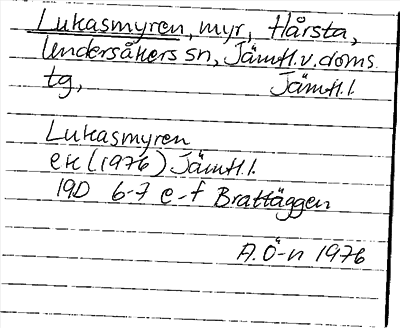 Lukasmyren, myr, Hårsta,
Undersåkers sn, Jämtl.v.doms.
tg, Jämtl.l.
Lukasmyren
ek (1976) Jämtl.l.
19D 6-7 e-f Brattäggen
A.Ö-n 1976